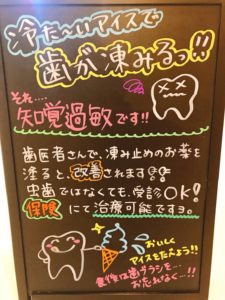 冷た〜いアイスで
歯が凍みるっ!!
それ…
知覚過敏です!!
歯医者さんで、凍み止めのお薬を
塗ると、改善されます!!
虫歯ではなくても、受診OK!
保険にて治療可能ですョ。
おいしく
アイスをたべよう!!
食後は歯ブラシを…
おわすれなく…!!